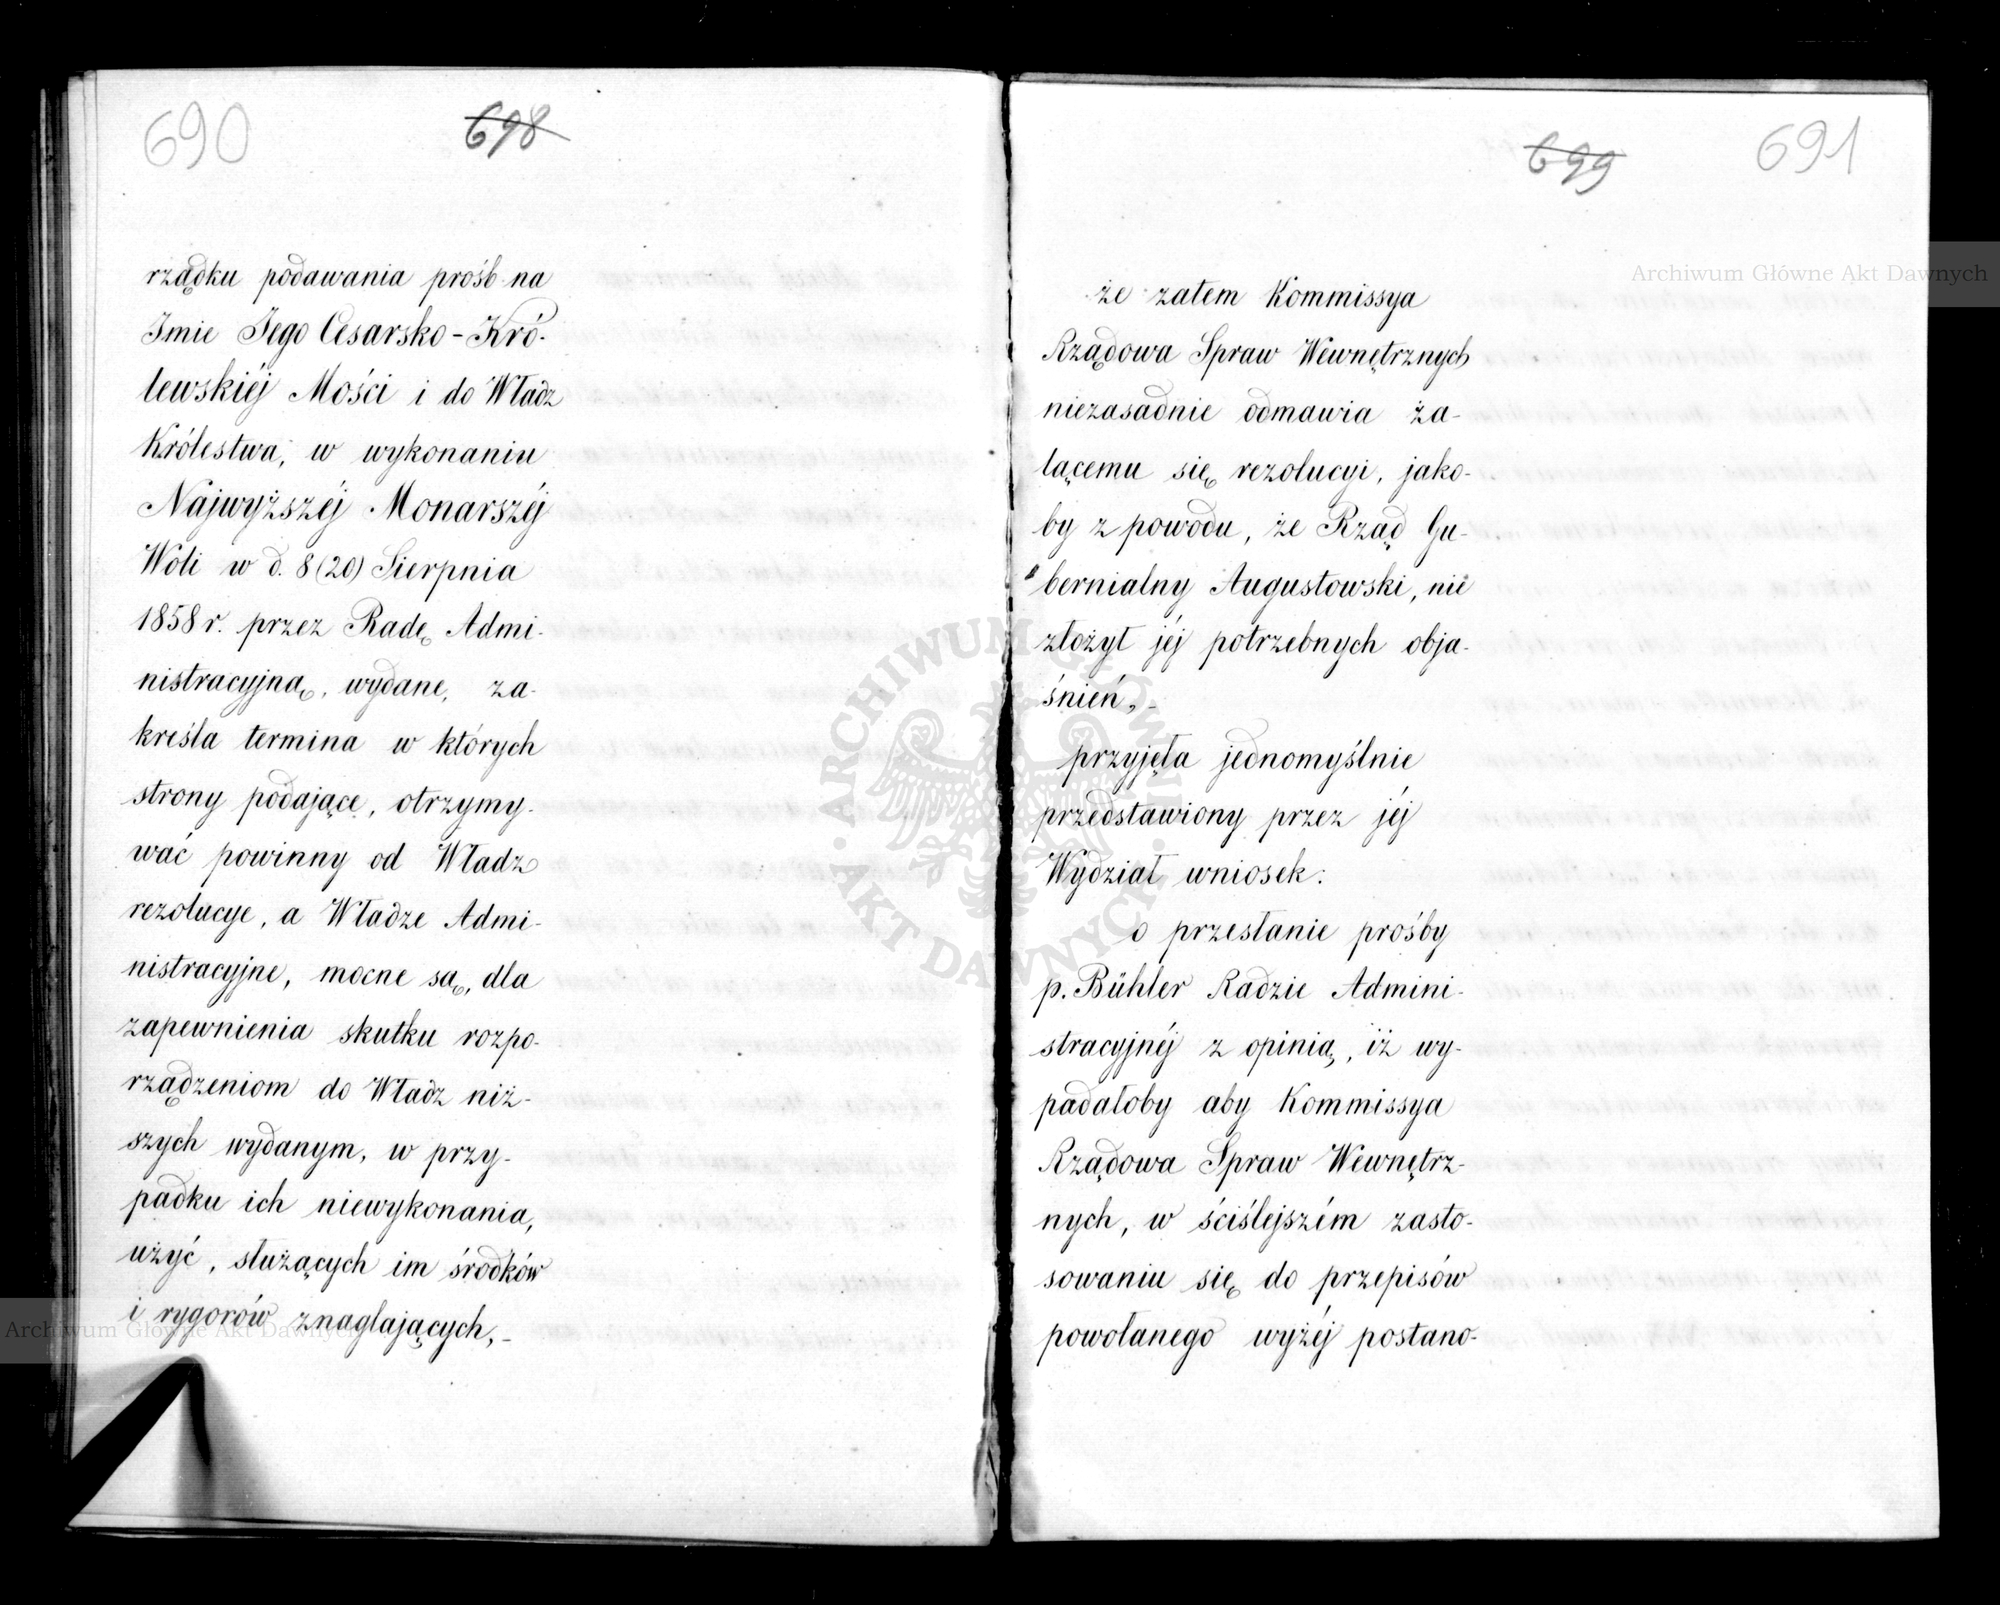 690
698
rządku podawania próśb na
Imie Jego Cesarsko-Kró-
lewskiéj Mości i do Władz
Królestwa, w wykonaniu
Najwyższéj Monarszéj
Woli w d. 8 (20) Sierpnia
1858 r. przez Radę Admi-
nistracyjną, wydane, za-
kreśla termina w których
strony podające, otrzymy-
wać powinny od Władz
rezolucye, a Władze Admi-
nistracyjne, mocne są, dla
zapewnienia skutku rozpo-
rządzeniom do Władz niż-
szych wydanym, w przy-
padku ich niewykonania,
użyć, służących im środków
i rygorów znaglających,-
699
691
że zatem Kommissya
Rządowa Spraw Wewnętrznych
niezasadnie odmawia ża-
lącemu się rezolucyi, jako-
by z powodu, że Rząd Gu-
bernialny Augustowski, nie
złożył jéj potrzebnych obja-
śnień,-
przyjęła jednomyślnie
przedstawiony przez jéj
Wydział wniosek:
o przesłanie prośby
p. Bühler Radzie Admini-
stracyjnéj z opinią, iż wy-
padałoby aby Kommissya
Rządowa Spraw Wewnętrz-
nych, w ściślejszém zasto-
sowaniu się do przepisów
powołanego wyżéj postano-
Archiwum Główne Akt Dawnych
Archiwum Główne Akt Dawnych
ARCHIWUM GŁÓWNE · AKT DAWNYCH ·